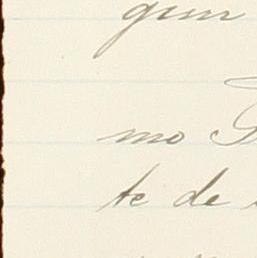 gum
mo
te de